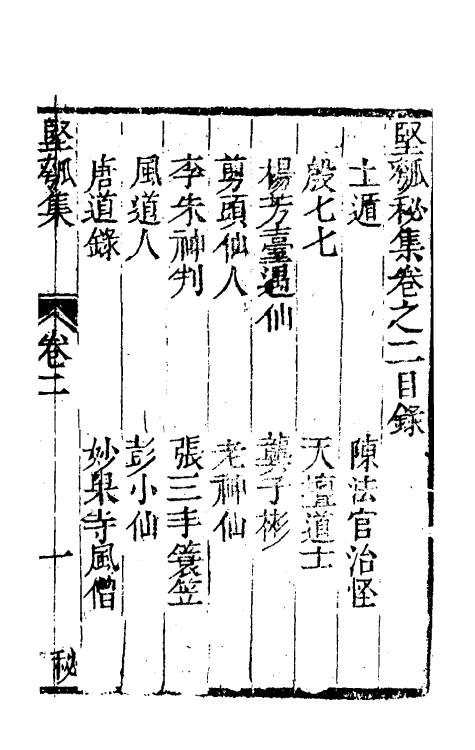 堅瓠秘集卷之二目錄
土遁　陳法官治怪
殷七七　天壇道士
楊芳臺遇仙　龔子彬
剪頭仙人　老神仙
李朱神判　張三丰簑笠
風道人　彭小仙
唐道錄　妙果寺風僧
堅瓠集　卷二　一　秘